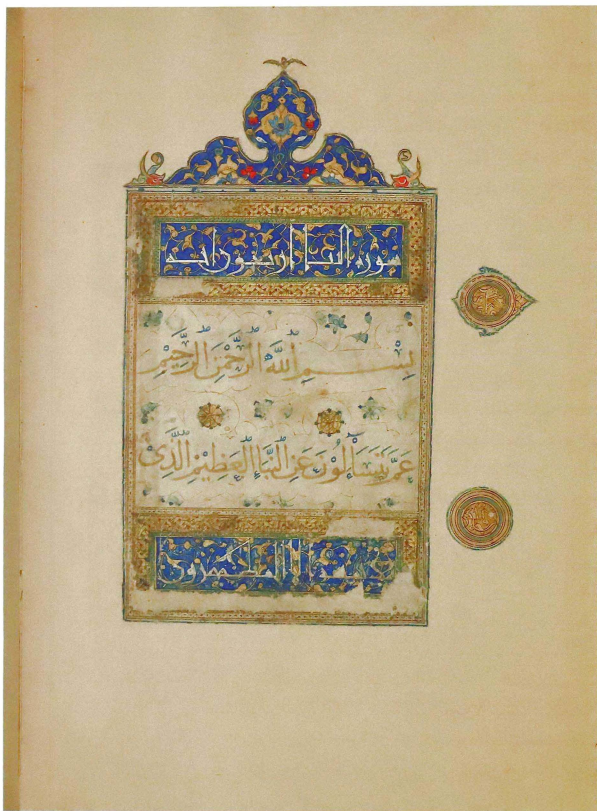 سورة النبأ أربعون آية
بِسْمِ اللَّهِ الرَّحْمَٰنِ الرَّحِيمِ
عَمَّ يَتَسَاءَلُونَ عَنِ النَّبَإِ الْعَظِيمِ الَّذِي